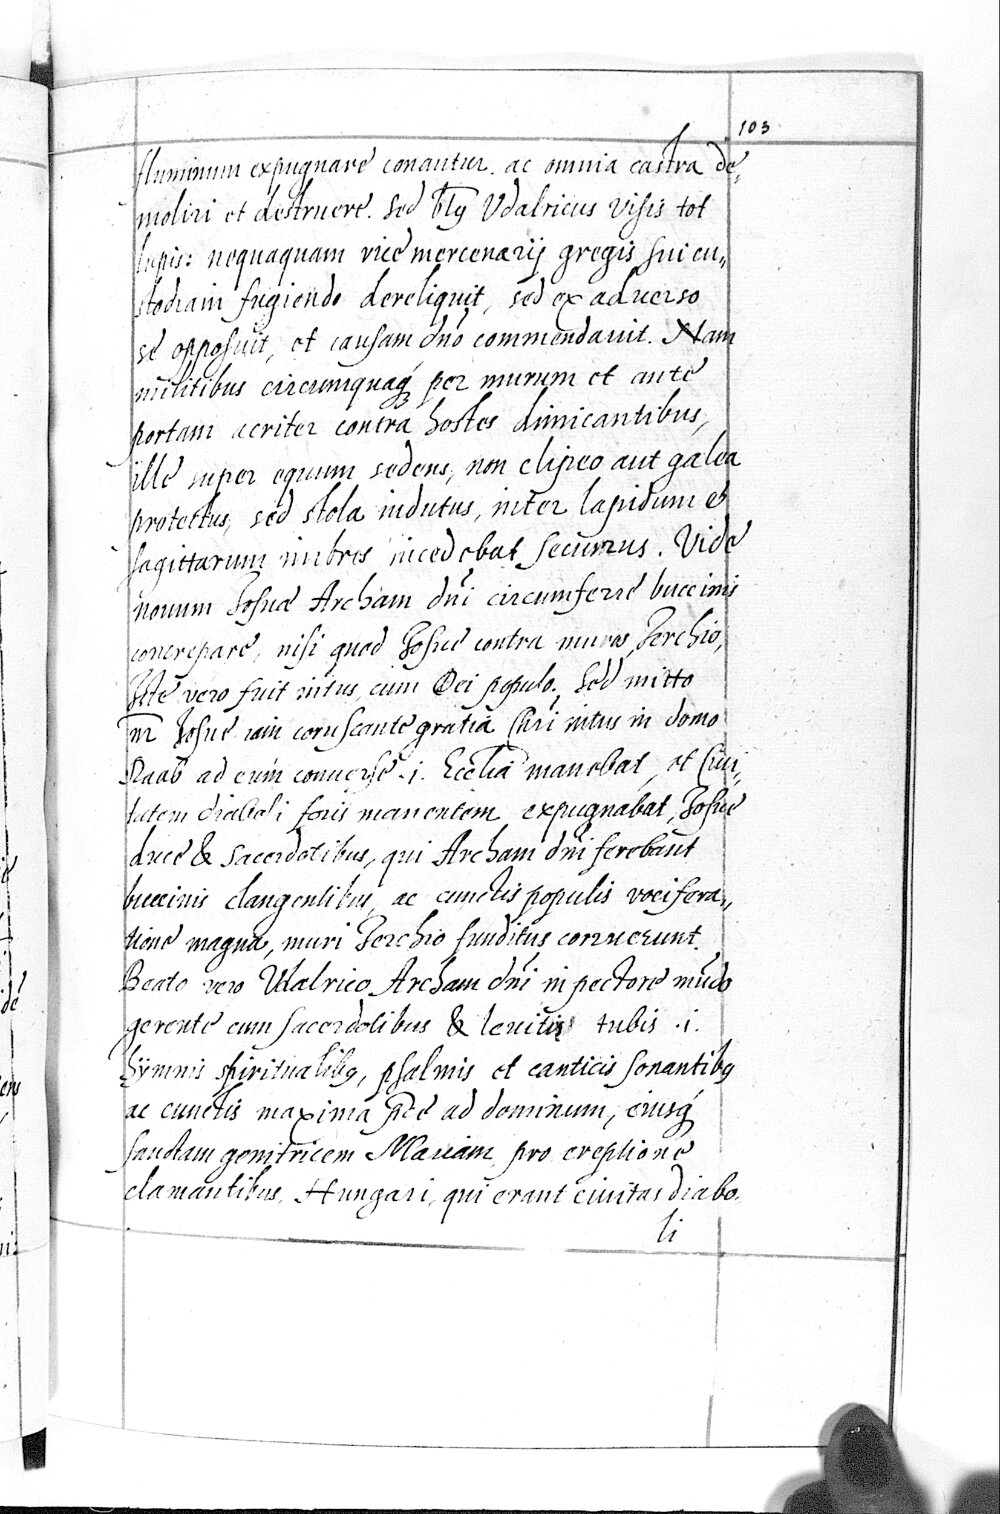 103
fluminum expugnare conantur. ac omnia castra de„
moliri et destruere. Sed btꝰ Udalricus visis tot
lupis: nequaquam vice mercenarij gregis sui cu„
stodiam fugiendo dereliquit, sed ex adverso
se opposuit, et causam dn̄o commendavit. Nam
militibus circumquaq́ꝫ per murum et ante
portam acriter contra hostes dimicantibus,
ille super equum sedens, non clipeo aut galea
protectus, sed stola indutus, inter lapidum et
sagittarum imbres incedebat securus. Vide
novum Josue Archam dn̄i circumferre buccinis
concrepare, nisi quod Josue contra muros Jerchio,
Iste vero fuit intus cum Dei populo. Sed mitto
m̄ Josue iam coruscante gratia Chr̄i intus in domo
Raab ad eum conversę .i. Ecclīa manebat, et Civi„
tatem diaboli foris manentem expugnabat, Josue
duce & sacerdotibus, qui Archam dn̄i ferebant
buccinis clangentibus, ac cunctis populis vocifera„
tione magna, muri Jerchio funditus corruerunt
Beato vero Udalrico Archam dn̄i in pectore mūdo
gerente cum sacerdotibus & levitis tubis .i.
hymnis spiritualibꝰ, psalmis et canticis sonantibꝰ
ac cunctis maxima p̄ce ad dominum, eiusq́
sanctam genitricem Mariam pro ereptione
clamantibus. Hungari, qui erant civitas diabo„
li